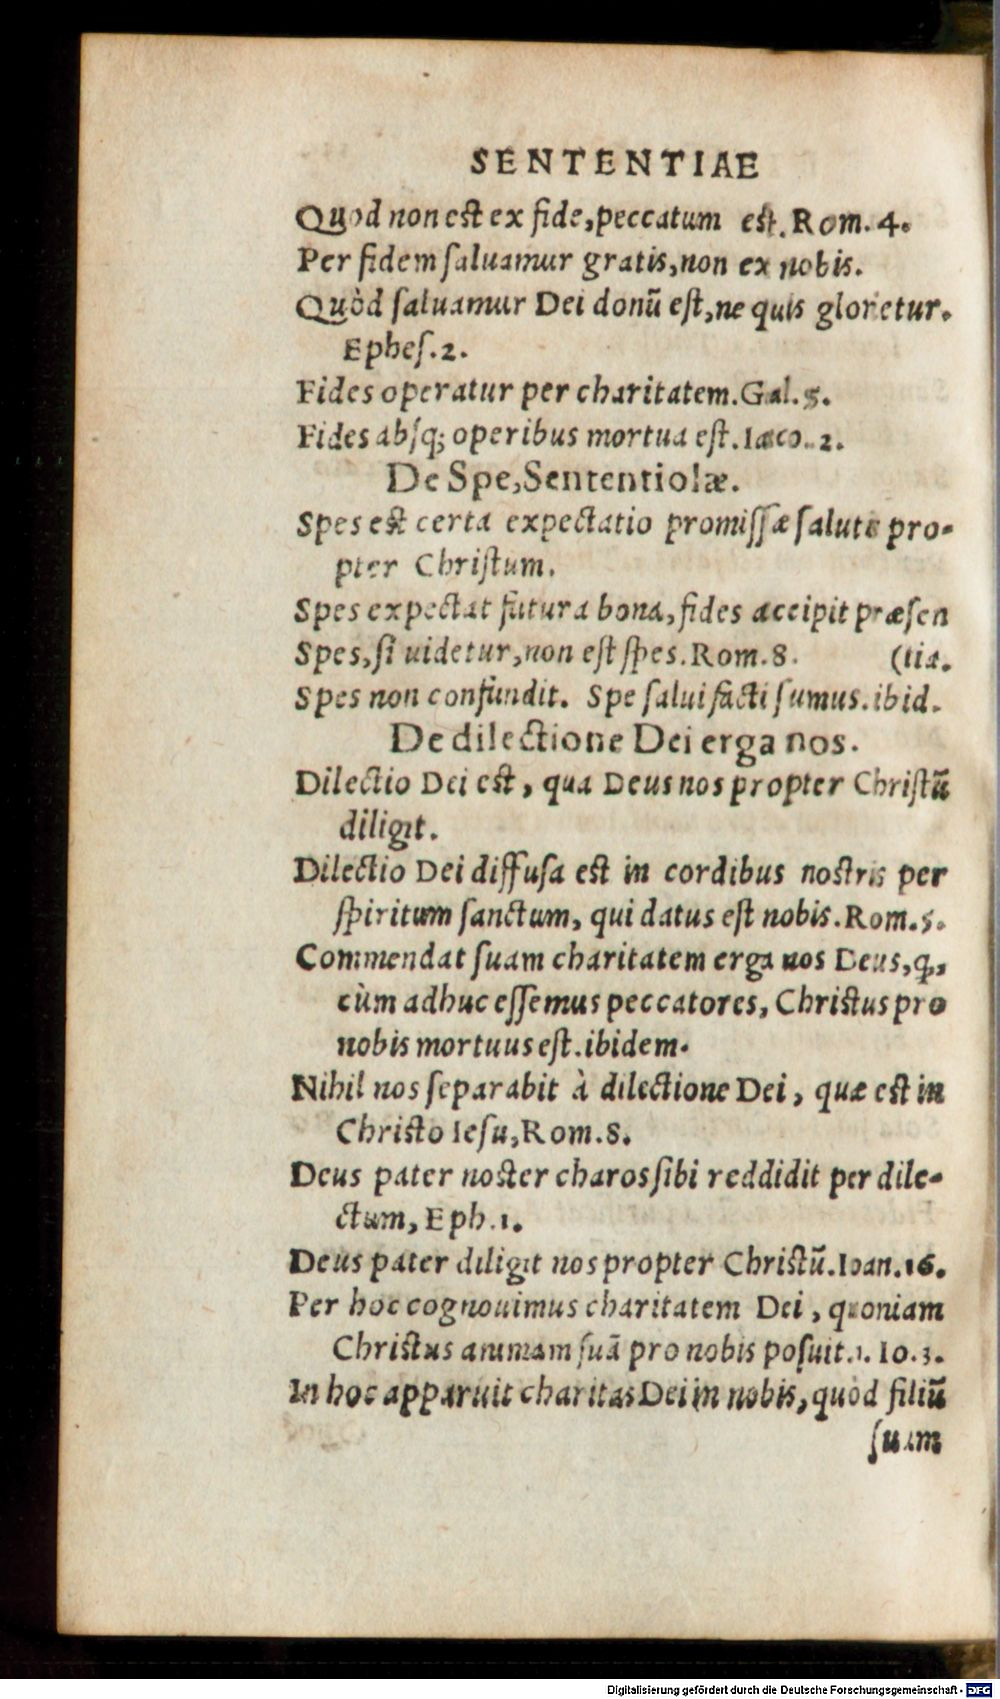 SENTENTIAE
Quod non est ex fide, peccatum est. Rom. 4.
Per fidem saluamur gratis, non ex nobis.
Quòd saluamur Dei donū est, ne quis glorietur.
Ephes. 2.
Fides operatur per charitatem. Gal. 5.
Fides absq; operibus mortua est. Iaco. 2.
De Spe, Sententiolæ.
Spes est certa expectatio promissæ salutis pro-
pter Christum.
Spes expectat futura bona, fides accipit præsen
Spes, si uidetur, non est spes. Rom. 8. (tia.
Spes non confundit. Spe salui facti sumus. ibid.
De dilectione Dei erga nos.
Dilectio Dei est, qua Deus nos propter Christū
diligit.
Dilectio Dei diffusa est in cordibus nostris per
spiritum sanctum, qui datus est nobis. Rom. 5.
Commendat suam charitatem erga nos Deus, q,
cùm adhuc essemus peccatores, Christus pro
nobis mortuus est. ibidem.
Nihil nos separabit à dilectione Dei, quæ est in
Christo Iesu, Rom. 8.
Deus pater noster charos sibi reddidit per dile-
ctum, Eph. 1.
Deus pater diligit nos propter Christū. Ioan. 16.
Per hoc cognouimus charitatem Dei, quoniam
Christus animam suā pro nobis posuit. 1. Io. 3.
In hoc apparuit charitas Dei in nobis, quòd filiū
suum
Digitalisierung gefördert durch die Deutsche Forschungsgemeinschaft - DFG